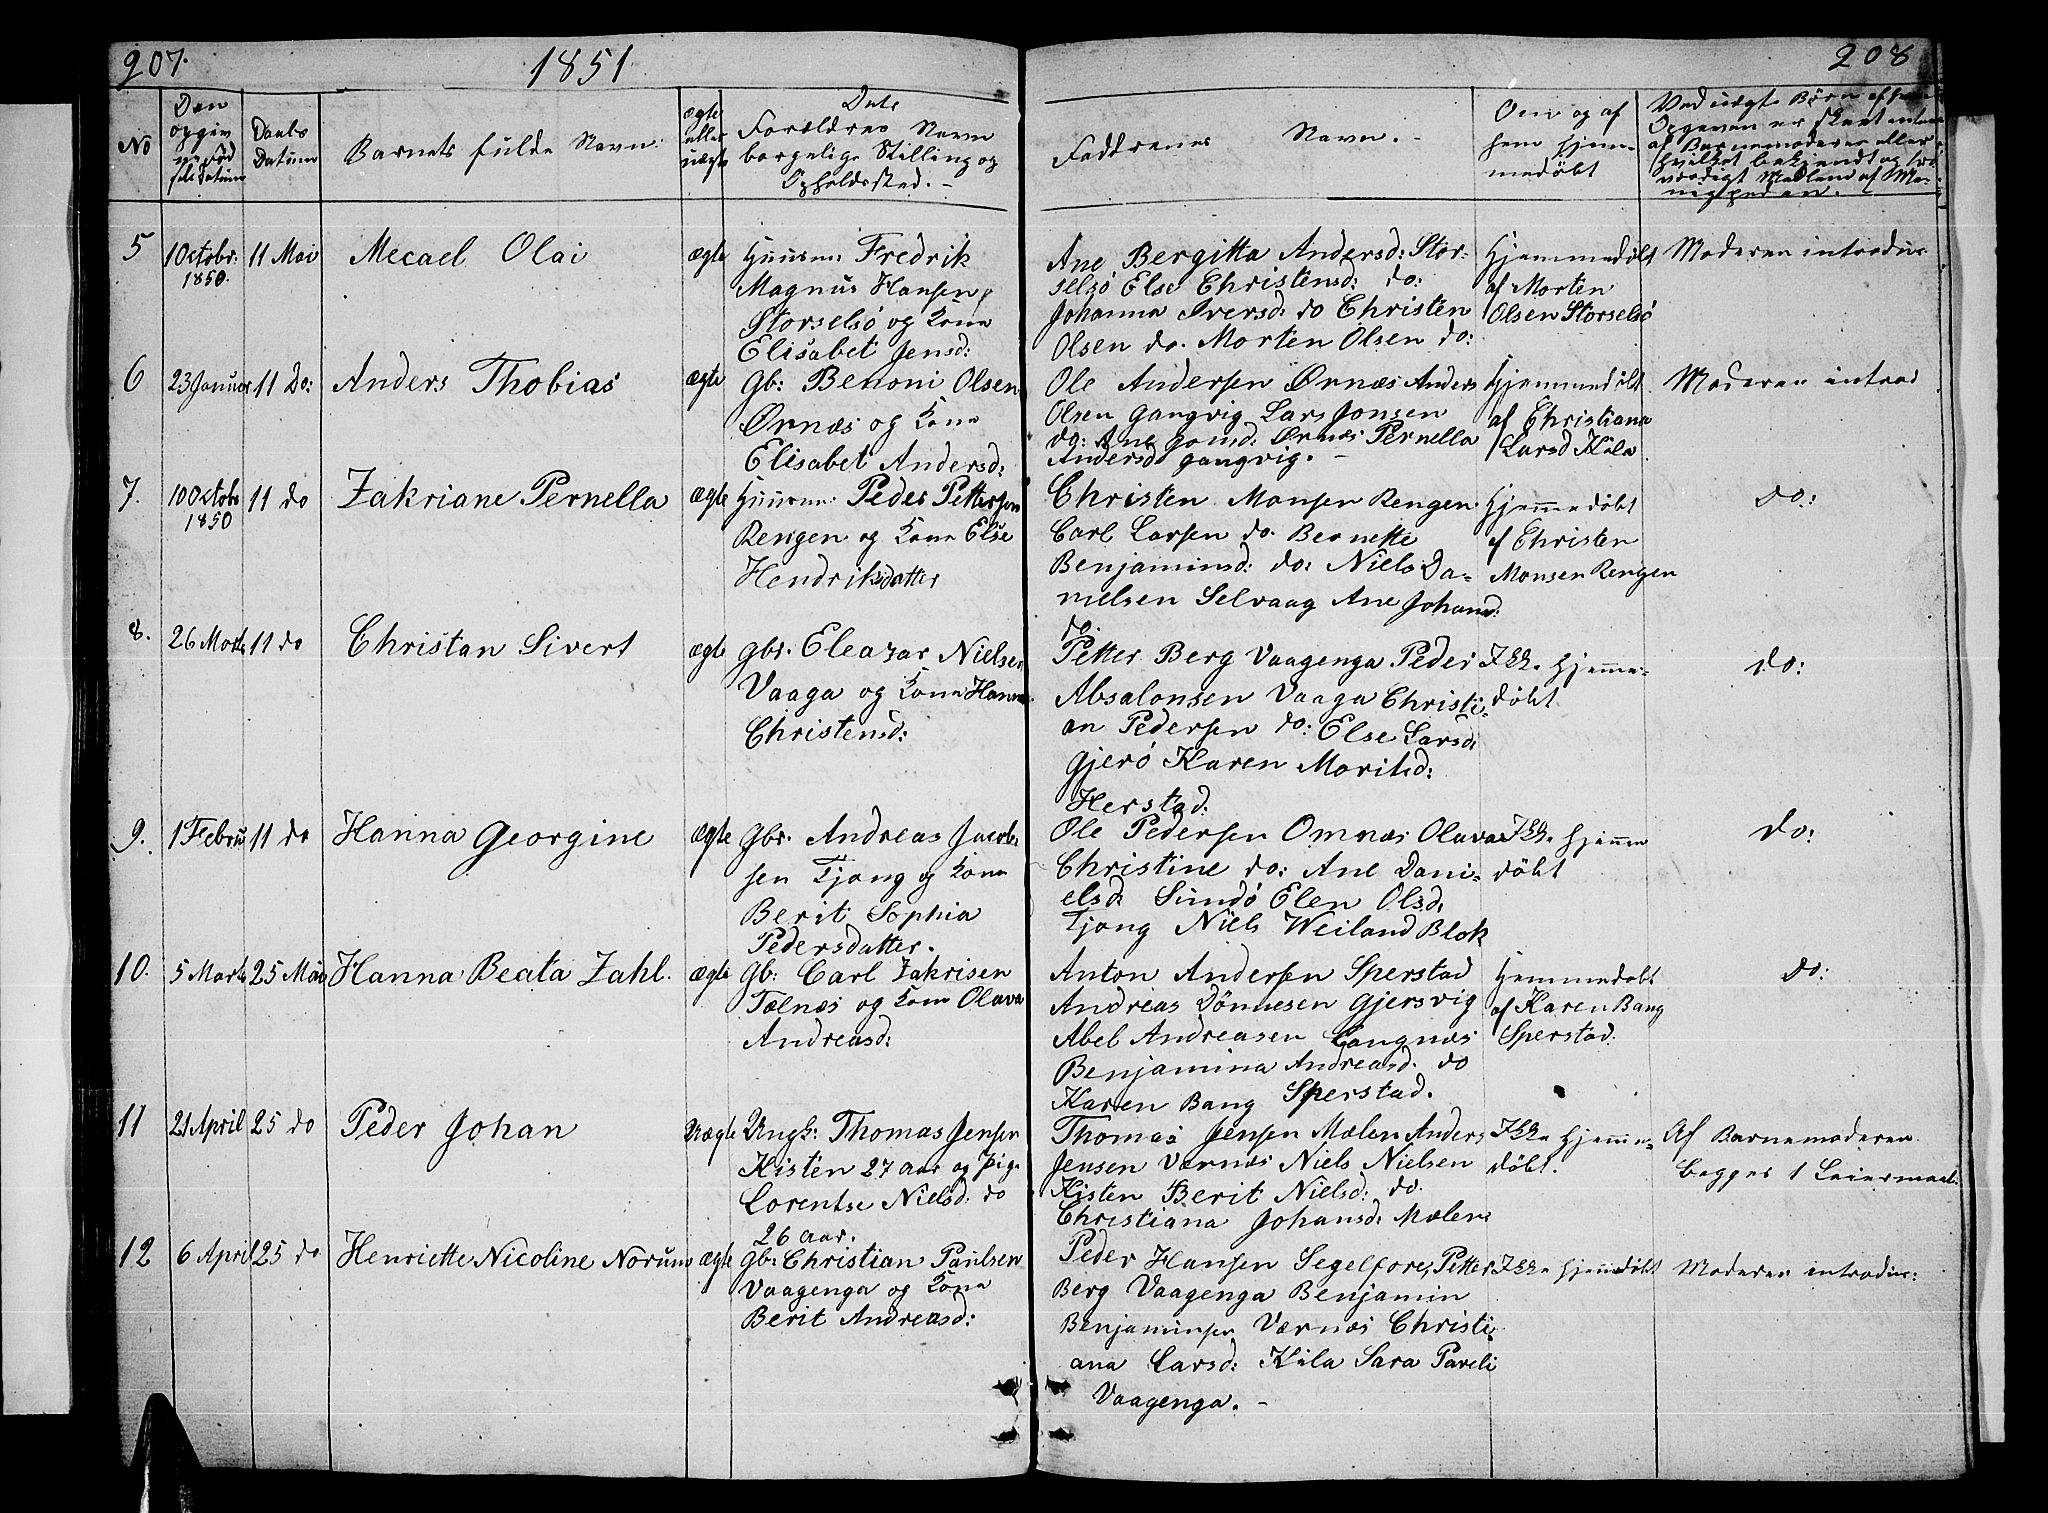 207.
1851
208
No
Den
opgiv
ne Fød
sels Datum
Daabs
Datum
Barnets fulde Navn.
ægte
eller
uægte
Dets
Forældres Navn
borgelige Stilling og
Opholdssted. -
Faddrenes Navn. -
Om og af
hem hjem-
medøbt
Ved uægte Børn af hvem
Opgaven er skeet enten
af Barnemoderen eller
hvilket bekjendt og tro
værdigt Medlem af Me-
nigheden.
5
1 Octobr:
1850.
11 Mai
Mecael Olai
ægte
Huusm: Fredrik
Magnus Hansen
Storselsö og Kone
Elisabet Jensd:
Ane Bergitta Andersd: Stor-
selsö Else Christensd: do:
Johanna Iversd: do Christen
Olsen do. Morten Olsen do:
Hjemmedøbt
af Morten
Olsen Storselsö
Moderen introdus
6
23 Januar
11 Do:
Anders Thobias
ægte
Gb: Benoni Olsen
Ørnæs og Kone
Elisabet Andersd:
Ole Andersen Ørnæs Anders
Olsen Gangvig Lars Jonsen
do: Ane Jonsd: Ørnæs Pernella
Andersd Gangvig. -
Hjemmedøbt
af Christiana
Larsd Kila
Moderen introd
7.
10 Octobr
1850
11 do
Zakriane Pernella
ægte
Huusm: Peder Pettersen
Rengen og Kone Else
Hendriksdatter
Christen Monsen Rengen
Carl Larsen do. Bernette
Benjaminsd: do: Niels Da-
nielsen Selvaag Ane Johansd:
do.
Hjemmedøbt
af Christen
Monsen Rengen
do:
8.
26 Marts
11 do
Christan Sivert
ægte
Gbr. Eleazar Nielsen
Vaaga og Kone Hanna
Christensd:
Petter Berg Vaagenga Peder
Absalonsen Vaaga Christi-
an Pedersen do: Else Larsd:
Gjerö Karen Moritsd:
Herstad:
Ikke hjemme-
døbt
do:
9.
1 Febru
11 do
Hanna Georgine
ægte
Gbr. Andreas Jacob-
sen Tjong og Kone
Berit Sophia
Pedersdatter.
Ole Pedersen Omnæs Olava
Christine do: Ane Dani-
elsd: Sundö Elen Olsd:
Tjong Niels Weiland Blok
Ikke hjemme
døbt
do:
10.
5 Marts
25 Mai
Hanna Beata Zahl.
ægte
Gb: Carl Zakrisen
Tælnæs og Kone Olava
Andreasd:
Anton Andersen Sperstad
Andreas Dönnesen Gjersvig
Abel Andreasen Langnæs
Benjamina Andreasd. do
Karen Bang Sperstad.
Hjemmedøbt
af Karen Bang
Sperstad.
do:
11
21 April
25 do
Peder Johan
Uægte
Ungk: Thomas Jensen
Kisten 27 aar og Pige
Lorentse Nielsd: do
26 aar.
Thomas Jensen Mælen Anders
Jensen Værnæs Niels Nielsen
Kisten Berit Nielsd: do.
Christiana Johansd: Mælen
Ikke hjemme-
døbt.
Af Barnemoderen
begges 1 Leiermaal.
12
6 April
25 do
Henriette Nicoline Norum
ægte
Gb: Christian Paulsen
Vaagenga og Kone
Berit Andreasd:
Peder Hansen Segelfore, Petter
Berg Vaagenga Benjamin
Benjaminsen Værnæs Christi-
ana Larsd: Kila Sara Pareli
Vaagenga. -
Ikke hjemmedøbt
Moderen introdus: